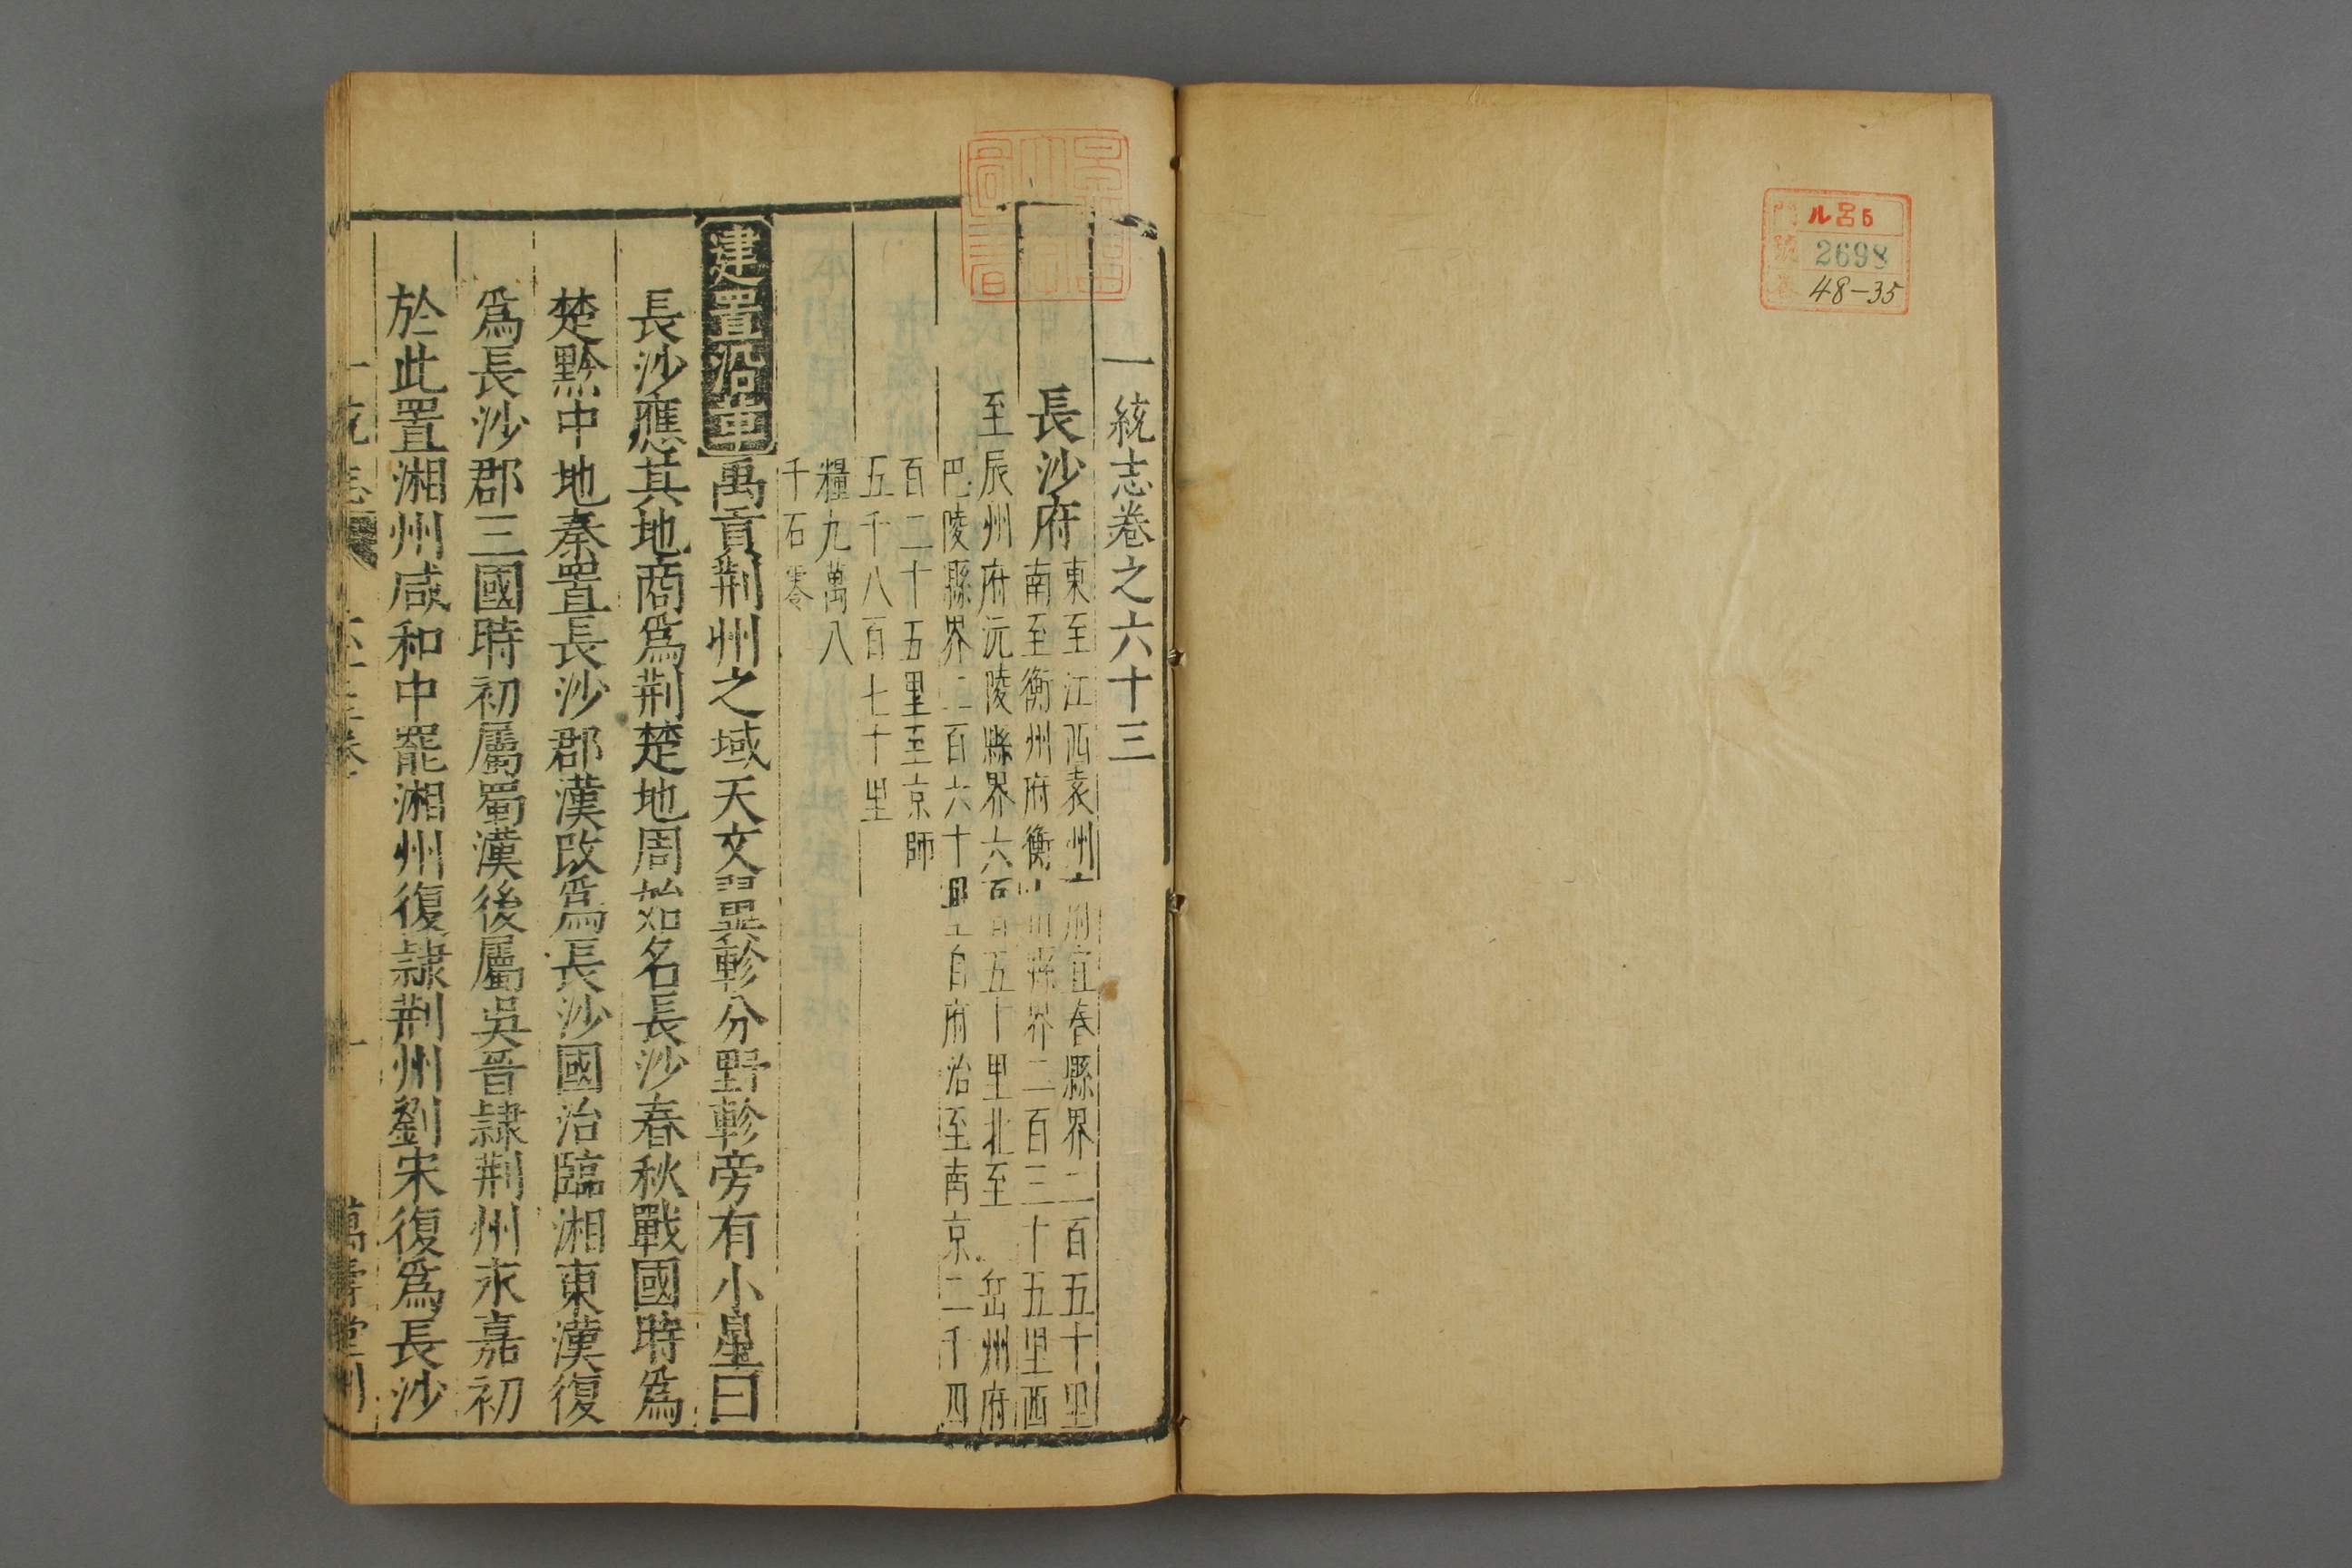 ル呂5
2698
48-35
一統志卷之六十三
長沙府
東至江西袁州府宜春縣界二百五十里
南至衡州府衡山縣界二百三十五里西
至辰州府沅陵縣界六百五十里北至岳州府
巴陵縣界二百六十里自府治至南京二千四
百二十五里至京師
五千八百七十里
糧九萬八
千石零
建置沿革禹貢荆州之域天文翼軫分野軫旁有小星曰
長沙應其地商爲荆楚地周始名長沙春秋戰國時爲
楚黔中地秦置長沙郡漢改爲長沙國治臨湘東漢復
爲長沙郡三國時初屬蜀漢後屬吳晉隷荆州永嘉初
於此置湘州咸和中罷湘州復隷荆州劉宋復爲長沙
一統志 六十三卷 一 萬壽堂刊